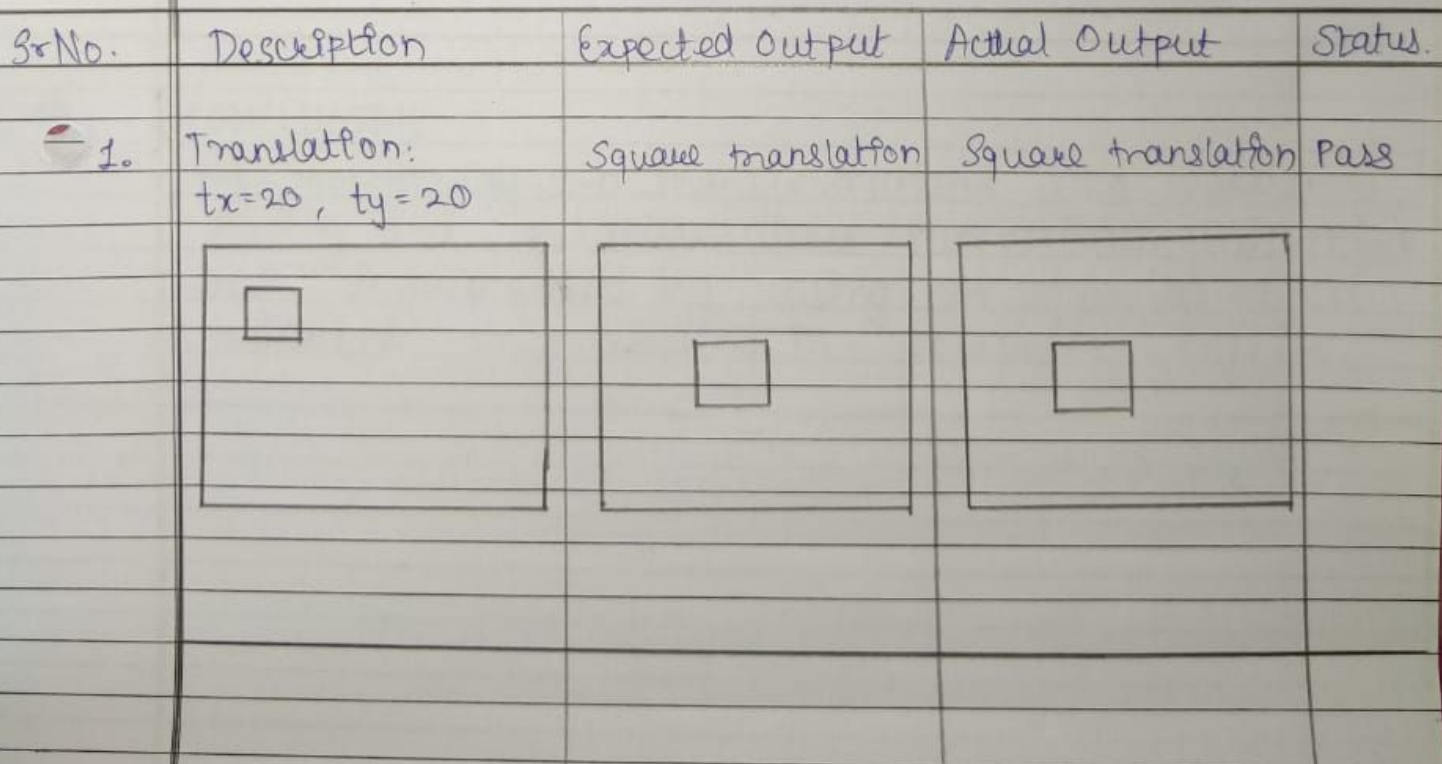 Sr No. Description Expected Output Actual Output Status.
1. Translation: Square translation Square translation Pass
tx=20, ty=20